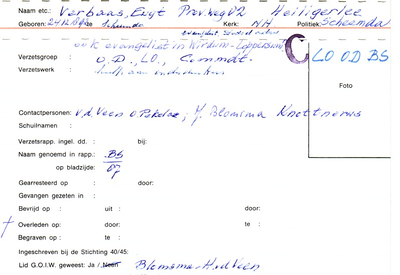 Naam etc.: Verbaas, Evyt Prov.weg 92 Heiligerlee
Geboren: 24.12.08 te Scheemda Kerk: NH Politiek: Scheemda
ook evangelist in Wirdum-Loppersum
Verzetsgroep : O.D., LO, Commdt. LO O.D BS
Verzetswerk :
Foto
Contactpersonen: v.d. Veen o. Pekela; J. Blomsma Knottnerus
Schuilnaam :
Verzetsrapp. ingel. dd. : bij:
Naam genoemd in rapp.: BS
op bladzijde:
Gearresteerd op : door:
Gevangen gezeten in :
Bevrijd op : uit : door:
† Overleden op : door: te :
Begraven op : te :
Ingeschreven bij de Stichting 40/45:
Lid G.O.I.W. geweest: Ja / Neen Blomsma-HvdVeen